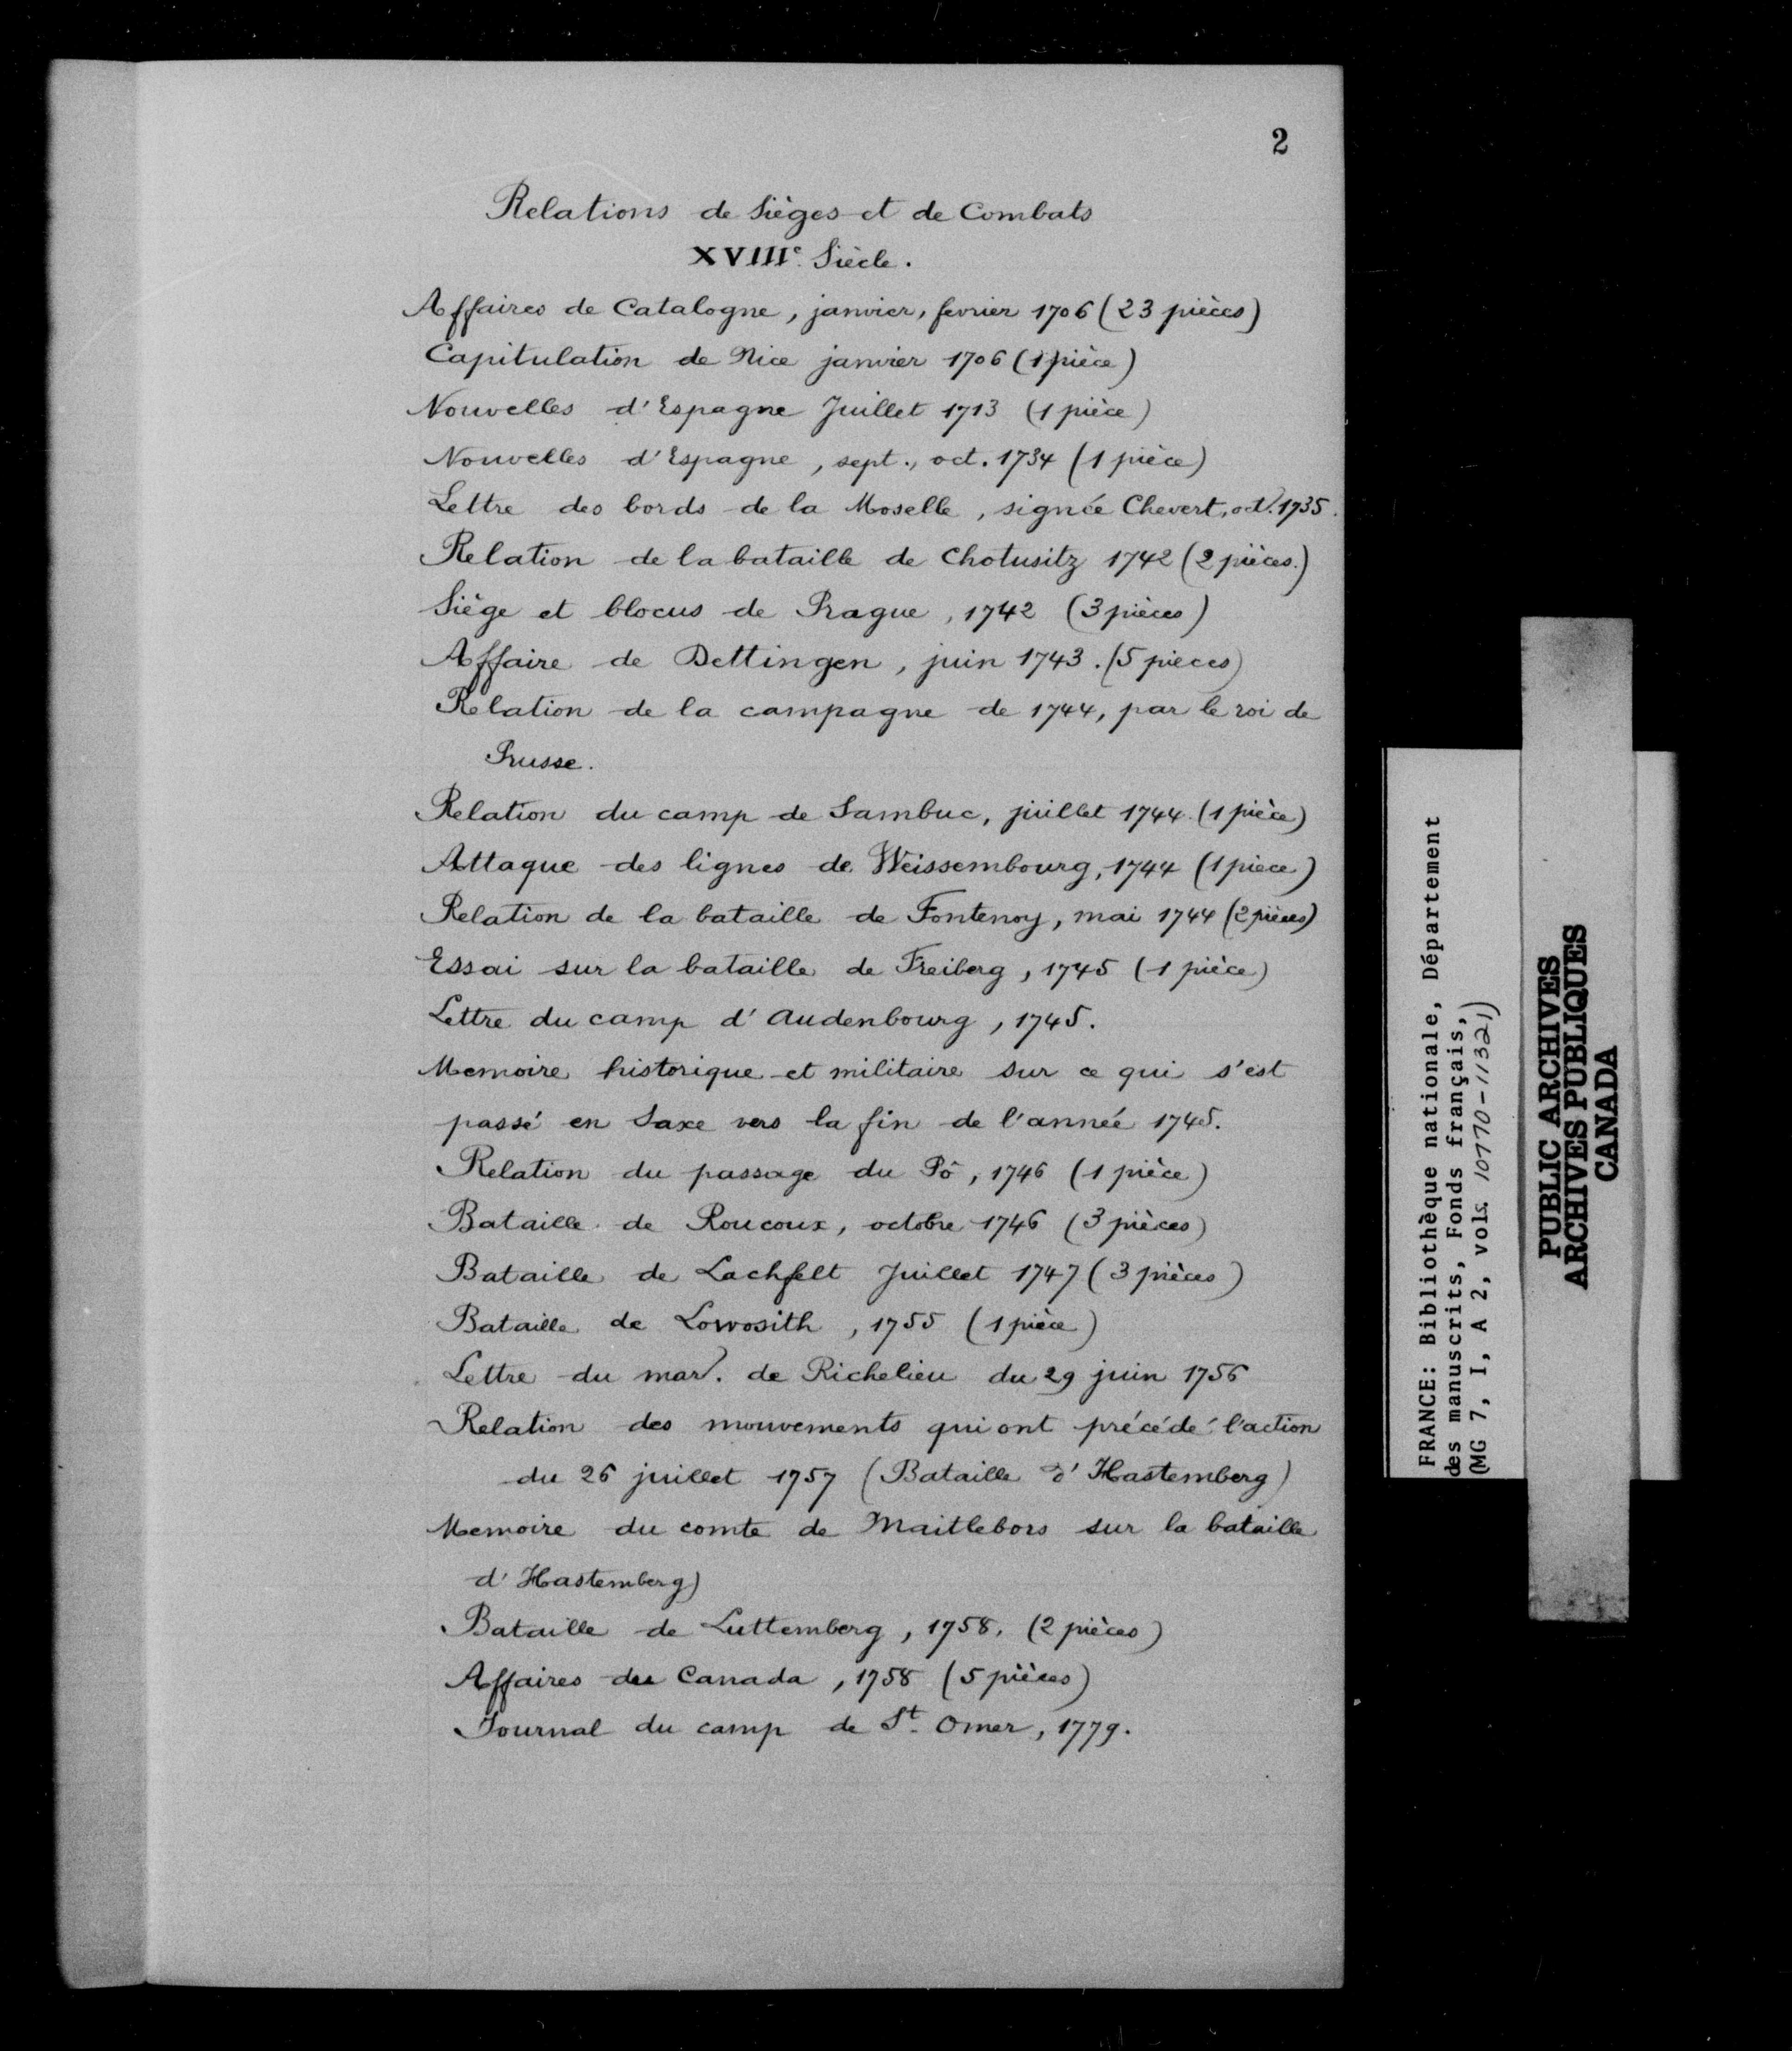 2
Relations de Sièges et de Combats
XVIIIe Siècle.
Affaires de Catalogne, janvier, fevrier 1706 (23 pièces)
Capitulation de Nice janvier 1706 (1 pièce)
Nouvelles d'Espagne Juillet 1713 (1 pièce)
Nouvelles d'Espagne, sept., oct. 1734 (1 pièce)
Lettre des bords de la Moselle, signée Chevert, oct. 1735.
Relation de la bataille de Chotusitz 1742 (2 pièces.)
Siège et blocus de Prague, 1742 (3 pièces)
Affaire de Dettingen, juin 1743. (5 pieces)
Relation de la campagne de 1744, par le roi de
Prusse.
Relation du camp de Sambuc, juillet 1744. (1 pièce)
Attaque des lignes de Weissembourg, 1744 (1 piece)
Relation de la bataille de Fontenoy, mai 1744 (2 pièces)
Essai sur la bataille de Freiberg, 1745 (1 pièce)
Lettre du camp d'Audenbourg, 1745.
Memoire historique et militaire sur ce qui s'est
passé en Saxe vers la fin de l'année 1745.
Relation du passage du Pô, 1746 (1 pièce)
Bataille de Roucoux, octobre 1746 (3 pièces)
Bataille de Lachfelt Juillet 1747 (3 pièces)
Bataille de Lowosith, 1755 (1 pièce)
Lettre du mar. de Richelieu du 29 juin 1756
Relation des mouvements qui ont précédé l'action
du 26 juillet 1757 (Bataille d'Hastemberg)
Memoire du comte de Maitlebors sur la bataille
d'Hastemberg)
Bataille de Luttemberg, 1758. (2 pièces)
Affaires du Canada, 1758 (5 pièces)
Journal du camp de St. Omer, 1779.
FRANCE: Bibliothèque nationale, Département
des manuscrits, Fonds français,
(MG 7, I, A 2, vols. 10770-11321)
PUBLIC ARCHIVES
ARCHIVES PUBLIQUES
CANADA